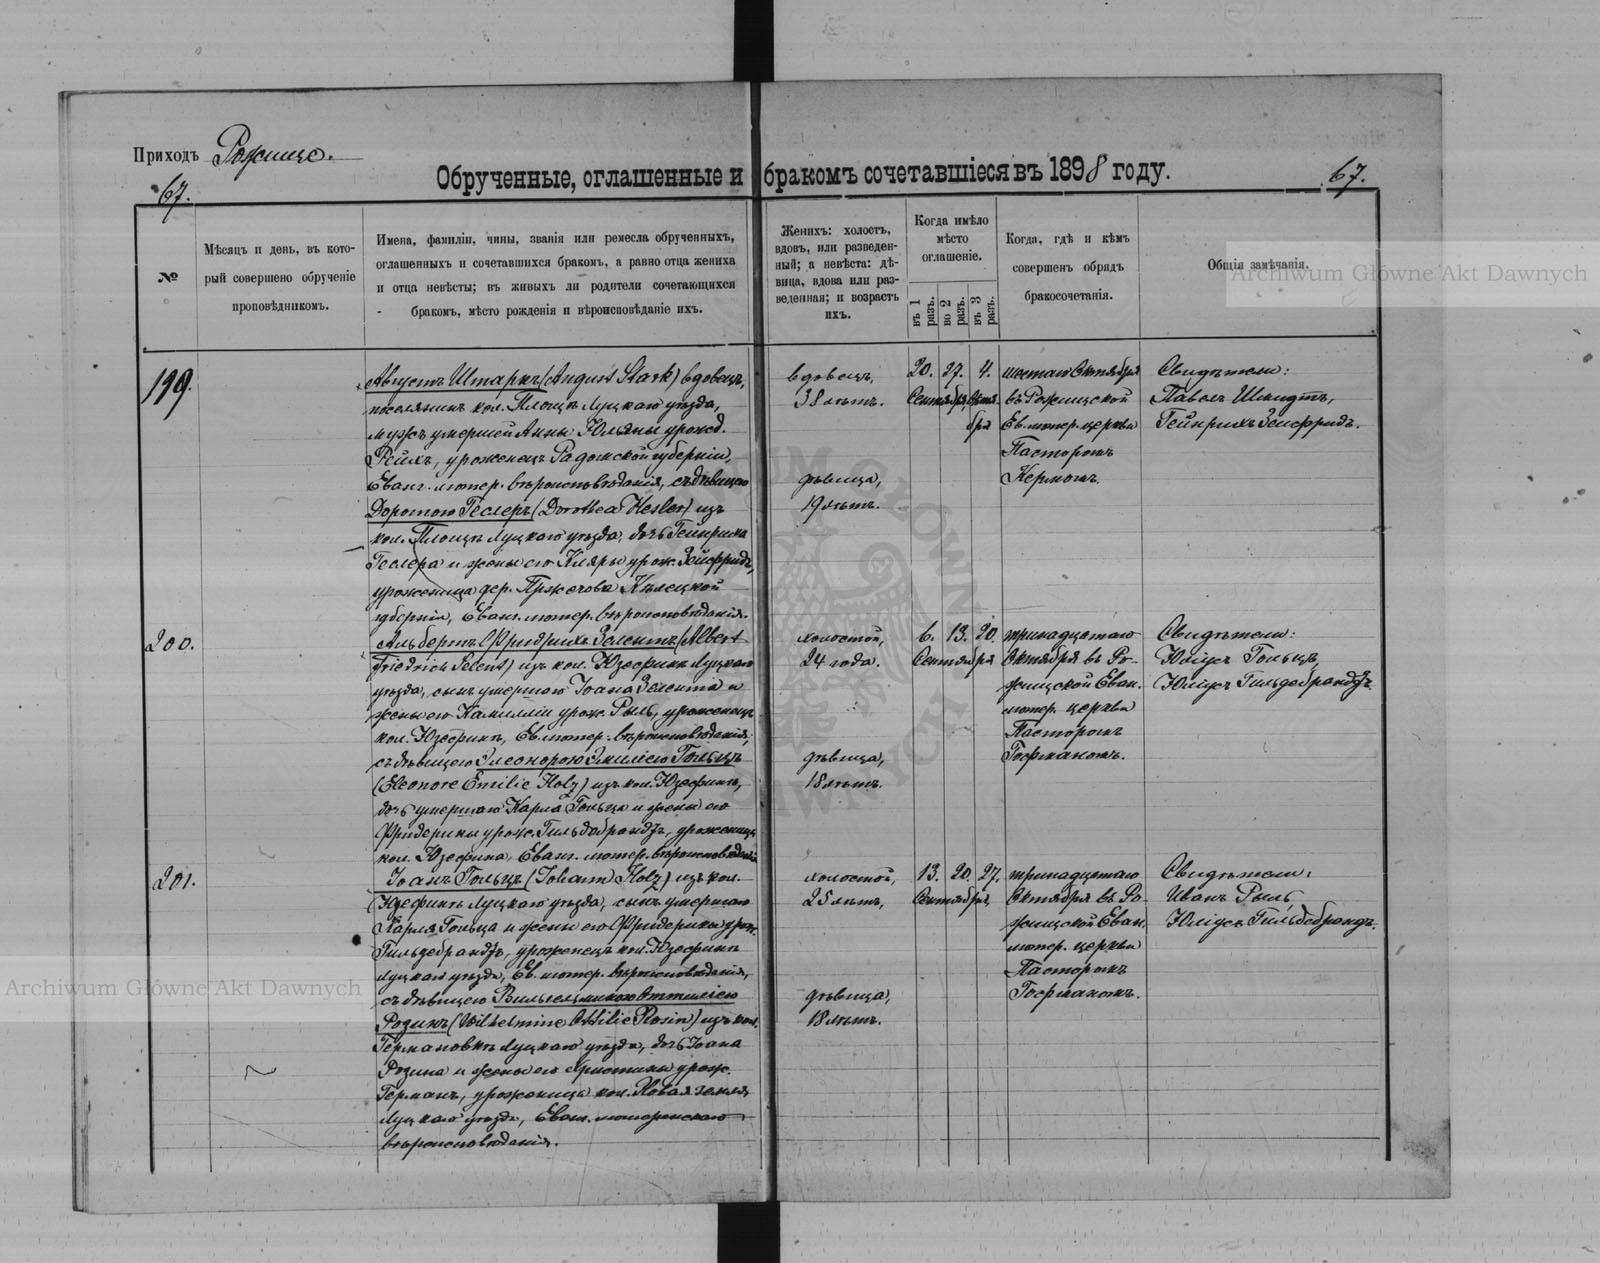 Приходъ Рожище.
67.
Обрученные, оглашенные и бракомъ сочетавшіеся въ 1898 году.
67.
№
Мѣсяцъ и день, въ кото-
рый совершено обрученіе
проповѣдникомъ.
Имена, фамиліи, чины, званія или ремесла обрученныхъ,
оглашенныхъ и сочетавшихся бракомъ, а равно отца жениха
и отца невѣсты; въ живыхъ ли родители сочетающихся
бракомъ, мѣсто рожденія и вѣроисповѣданіе ихъ.
Женихъ: холостъ,
вдовъ, или разведен-
ный; а невѣста: дѣ-
вица, вдова или раз-
веденная; и возрастъ
ихъ.
Когда имѣло
мѣсто
оглашеніе.
въ 1 разъ.
во 2 разъ.
въ 3 разъ.
Когда, гдѣ и кѣмъ
совершенъ обрядъ
бракосочетанія.
Общія замѣчанія.
Archiwum Główne Akt Dawnych
199.
Августъ Штаркъ (August Stark) вдовецъ,
поселянинъ кол. Площъ Луцкаго уѣзда,
мужъ умершей Анны Юльяны урожд.
Рейхъ, уроженецъ Радомской губерніи,
Еванг. лютер. вѣроисповѣданія, съ дѣвицею
Доротою Геслеръ (Dorothea Hesler) изъ
кол. Площъ Луцкаго уѣзда, дочь Гейнриха
Геслера и жены его Кляры урож. Зейфридъ,
уроженица дер. Пржечова Кѣлецкой
губерніи, Еванг. лютер. вѣроисповѣданія.
вдовецъ,
38 лѣтъ.
дѣвица,
19 лѣтъ.
20. 27. 4.
Сентября, Октя-
бря
шестаго Октября
въ Рожищской
Ев. лютер. церкви
Пасторомъ
Кермомъ.
Свидѣтели:
Павелъ Шмидтъ,
Гейнрихъ Зейфридъ.
200.
Альбертъ Фридрихъ Зелентъ (Albert
Friedrich Selent) изъ кол. Юзефинъ Луцкаго
уѣзда, сынъ умершаго Іоана Зелента и
жены его Камилліи урож. Рыль, уроженецъ
кол. Юзефинъ, Ев. лютер. вѣроисповѣданія,
съ дѣвицею Элеонорою Эмиліею Гольцъ
(Eleonore Emilie Holz) изъ кол. Юзефинъ,
дочь умершаго Карла Гольца и жены его
Фридерики урож. Гильдебрандъ, уроженица
кол. Юзефина, Еванг. лютер. вѣроисповѣданія
холостой,
24 года.
дѣвица,
18 лѣтъ.
6. 13. 20.
Сентября
тринадцатаго
Октября въ Ро-
жищской Еван.
лютер. церкви
Пасторомъ
Гофманомъ.
Свидѣтели:
Юліусъ Гольцъ,
Юліусъ Гильдебрандъ.
201.
Іоанъ Гольцъ (Johann Holz) изъ кол.
Юзефинъ Луцкаго уѣзда, сынъ умершаго
Карла Гольца и жены его Фридерики урож.
Гильдебрандъ, уроженецъ кол. Юзефинъ
Луцкаго уѣзда, Ев. лютер. вѣроисповѣданія,
съ дѣвицею Вильгельминою Оттиліею
Розинъ (Wilhelmine Ottilie Rosin) изъ кол.
Германовкъ Луцкаго уѣзда, дочь Іоана
Розина и жены его Христины урож.
Германъ, уроженица кол. Новая земля
Луцкаго уѣзда, Еванг. лютеранскаго
вѣроисповѣданія.
холостой,
25 лѣтъ,
дѣвица,
18 лѣтъ.
13. 20. 27.
Сентября,
тринадцатаго
Октября въ Ро-
жищской Еван.
лютер. церкви
Пасторомъ
Гофманомъ.
Свидѣтели:
Иванъ Рыль,
Юліусъ Гильдебрандъ.
Archiwum Główne Akt Dawnych